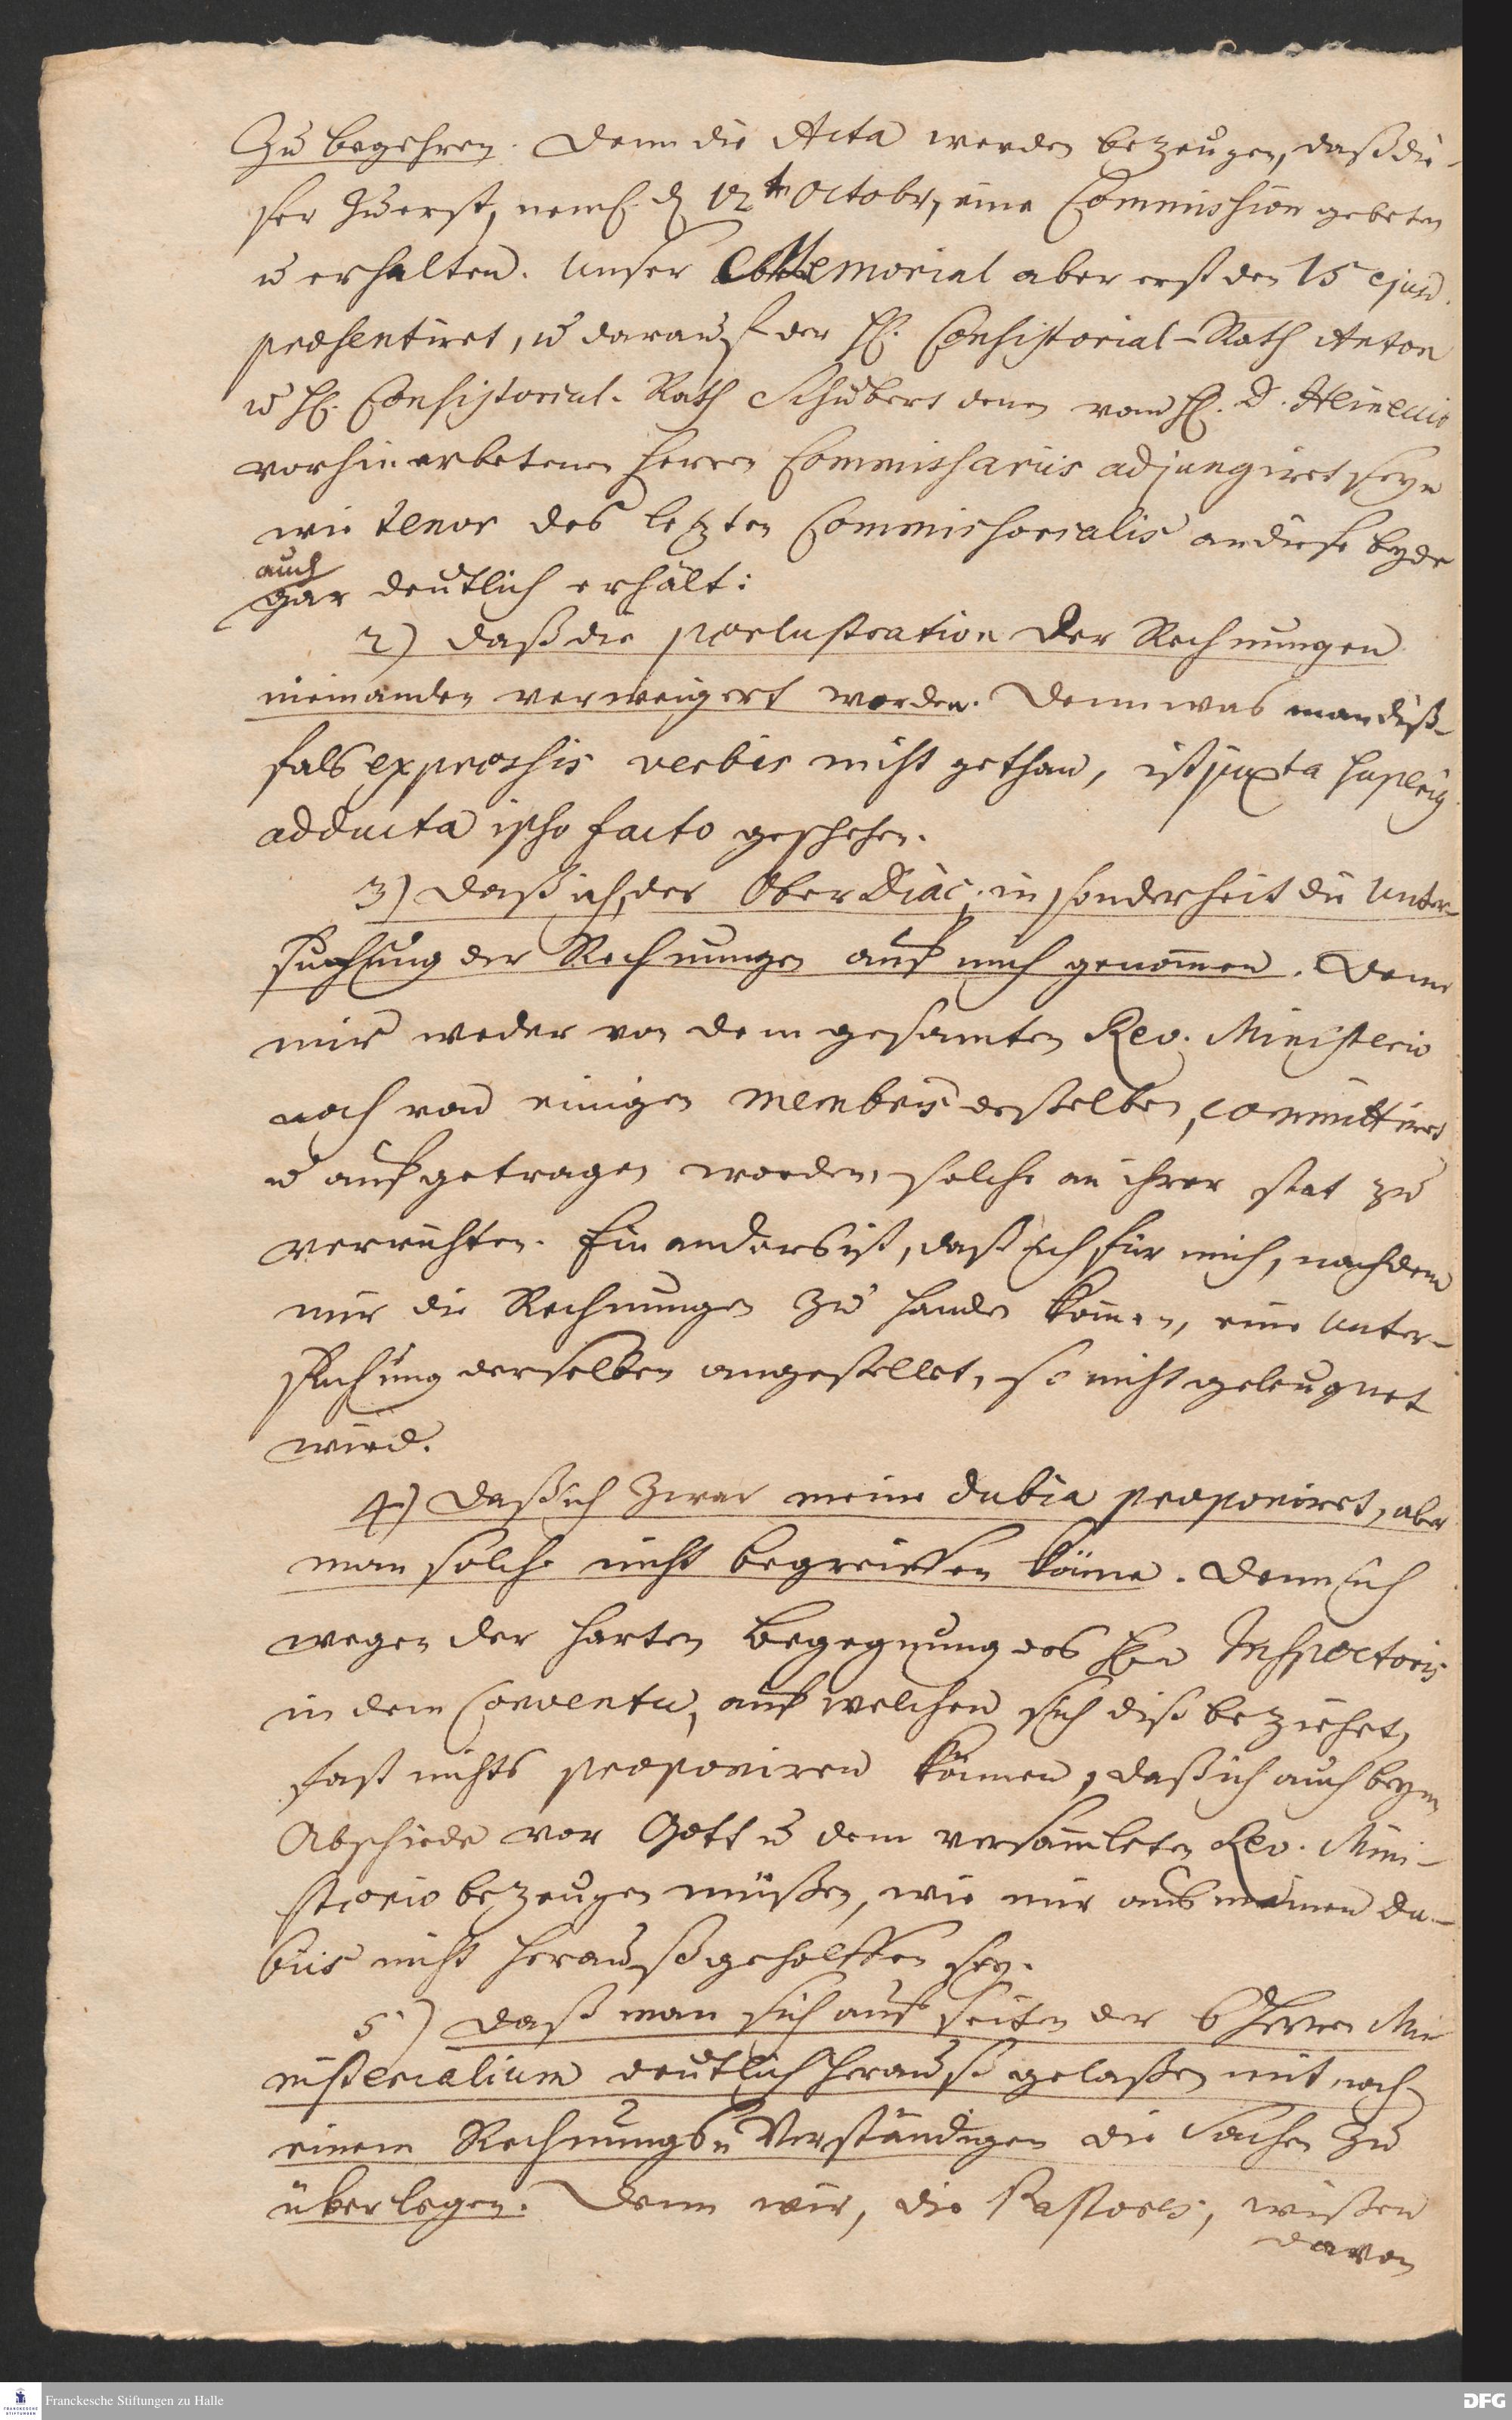 zu begehren. Denn die Acta werden bezeugen, daß die-
ser zuerst, neml. d. 12ten Octobr, eine Commission gebeten
u erhalten. Unser Memorial aber erst den 15 ejusd.
præsentiret, u darauf der H. Consistorial-Rath Anton
u H. Consistorial-Rath Schubert denen vom H. D. Heineccio
vorhin erbetenen Herren Commissariis adjungiret seyn
wie tenor des letzten Commissorialis an diese beyde
auch
gar deutlich erhält:
2) Daß die perlustration der Rechnungen
niemanden verweigert worden. Denn was man diß-
fals expressis verbis nicht gethan, ist juxta
adducta ipso facto geschehen.
3) Daß ich, der Ober Diac. insonderheit die Unter-
suchung der Rechnungen auf mich genommen. Denn
mir weder von dem gesamten Rev. Ministerio
noch von einigen membris desselben, committiret
u aufgetragen worden, solche an ihrer stat zu
verrichten. Ein anders ist, daß ich für mich, nachdem
mir die Rechnungen zu handen kommen, eine Unter-
suchung derselben angestellet, so nicht geleugnet
wird.
4) Daß ich zwar meine dubia proponiret, aber
man solche nicht begreiffen könne. Denn ich
wegen der harten Begegnung des Hn Inspectoris
in dem Conventu, auf welchen sich diß beziehet,
fast nichts proponiren können, daß ich auch beym
Abschiede vor Gott u dem versammleten Rev. Mini-
sterio bezeugen müßen, wie mir aus meinen du-
biis nicht herausgeholffen sey.
5) Daß man sich auf seiten der 6 Herren Mi-
nisterialium deutlich herauß gelaßen mit noch
einem Rechnungs-Verständigen die Sachen zu
überlegen. Denn wir, die Pastores, wißen
davon
Franckesche Stiftungen zu Halle
FRANCKESCHE STIFTUNGEN
DFG